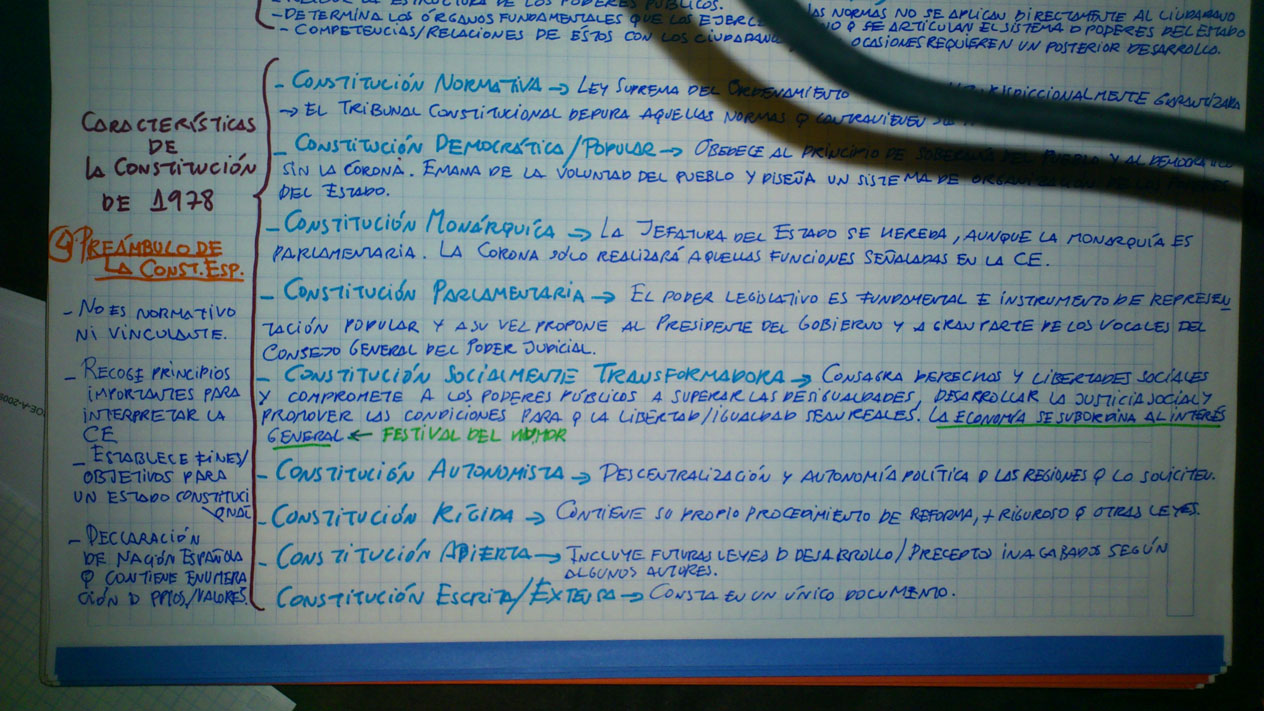 -DETERMINA LOS ÓRGANOS FUNDAMENTALES QUE LOS EJERCE
- COMPETENCIAS/RELACIONES DE ESTOS CON LOS CIUDADAN
LAS NORMAS NO SE APLICAN DIRECTAMENTE AL CIUDADANO
NO Q SE ARTICULAN EL SISTEMA D PODERES DEL ESTADO
OCASIONES REQUIEREN UN POSTERIOR DESARROLLO.
CARACTERÍSTICAS
DE
LA CONSTITUCIÓN
DE 1978
- CONSTITUCIÓN NORMATIVA → LEY SUPREMA DEL ORDENAMIENTO GARANTIZADA
→ EL TRIBUNAL CONSTITUCIONAL DEPURA AQUELLAS NORMAS Q CONTRAVIENEN
- CONSTITUCIÓN DEMOCRÁTICA/POPULAR → OBEDECE AL PRINCIPIO DE SOBERANÍA DEL PUEBLO Y AL DEMOCRÁTICO
SIN LA CORONA. EMANA DE LA VOLUNTAD DEL PUEBLO Y DISEÑA UN SISTEMA DE ORGANIZACIÓN DE LOS PODERES
DEL ESTADO.
- CONSTITUCIÓN MONÁRQUICA → LA JEFATURA DEL ESTADO SE HEREDA, AUNQUE LA MONARQUÍA ES
PARLAMENTARIA. LA CORONA SÓLO REALIZARÁ AQUELLAS FUNCIONES SEÑALADAS EN LA CE.
- CONSTITUCIÓN PARLAMENTARIA → EL PODER LEGISLATIVO ES FUNDAMENTAL E INSTRUMENTO DE REPRESEN
TACIÓN POPULAR Y A SU VEZ PROPONE AL PRESIDENTE DEL GOBIERNO Y A GRAN PARTE DE LOS VOCALES DEL
CONSEJO GENERAL DEL PODER JUDICIAL.
- CONSTITUCIÓN SOCIALMENTE TRANSFORMADORA → CONSAGRA DERECHOS Y LIBERTADES SOCIALES
Y COMPROMETE A LOS PODERES PÚBLICOS A SUPERAR LAS DESIGUALDADES, DESARROLLAR LA JUSTICIA SOCIAL Y
PROMOVER LAS CONDICIONES PARA Q LA LIBERTAD/IGUALDAD SEAN REALES. LA ECONOMÍA SE SUBORDINA AL INTERÉS
GENERAL ← FESTIVAL DEL HUMOR
- CONSTITUCIÓN AUTONOMISTA → DESCENTRALIZACIÓN Y AUTONOMÍA POLÍTICA D LAS REGIONES Q LO SOLICITEN.
- CONSTITUCIÓN RÍGIDA → CONTIENE SU PROPIO PROCEDIMIENTO DE REFORMA, + RIGUROSO Q OTRAS LEYES.
- CONSTITUCIÓN ABIERTA → INCLUYE FUTURAS LEYES D DESARROLLO/PRECEPTOS INACABADOS SEGÚN
ALGUNOS AUTORES.
- CONSTITUCIÓN ESCRITA/EXTENSA → CONSTA EN UN ÚNICO DOCUMENTO.
4 PREÁMBULO DE
LA CONST. ESP.
- NO ES NORMATIVO
NI VINCULANTE.
- RECOGE PRINCIPIOS
IMPORTANTES PARA
INTERPRETAR LA
CE
- ESTABLECE FINES/
OBJETIVOS PARA
UN ESTADO CONSTITUCI
ONAL
- DECLARACIÓN
DE NACIÓN ESPAÑOLA
Q CONTIENE ENUMERA
CIÓN D PPIOS/VALORES.